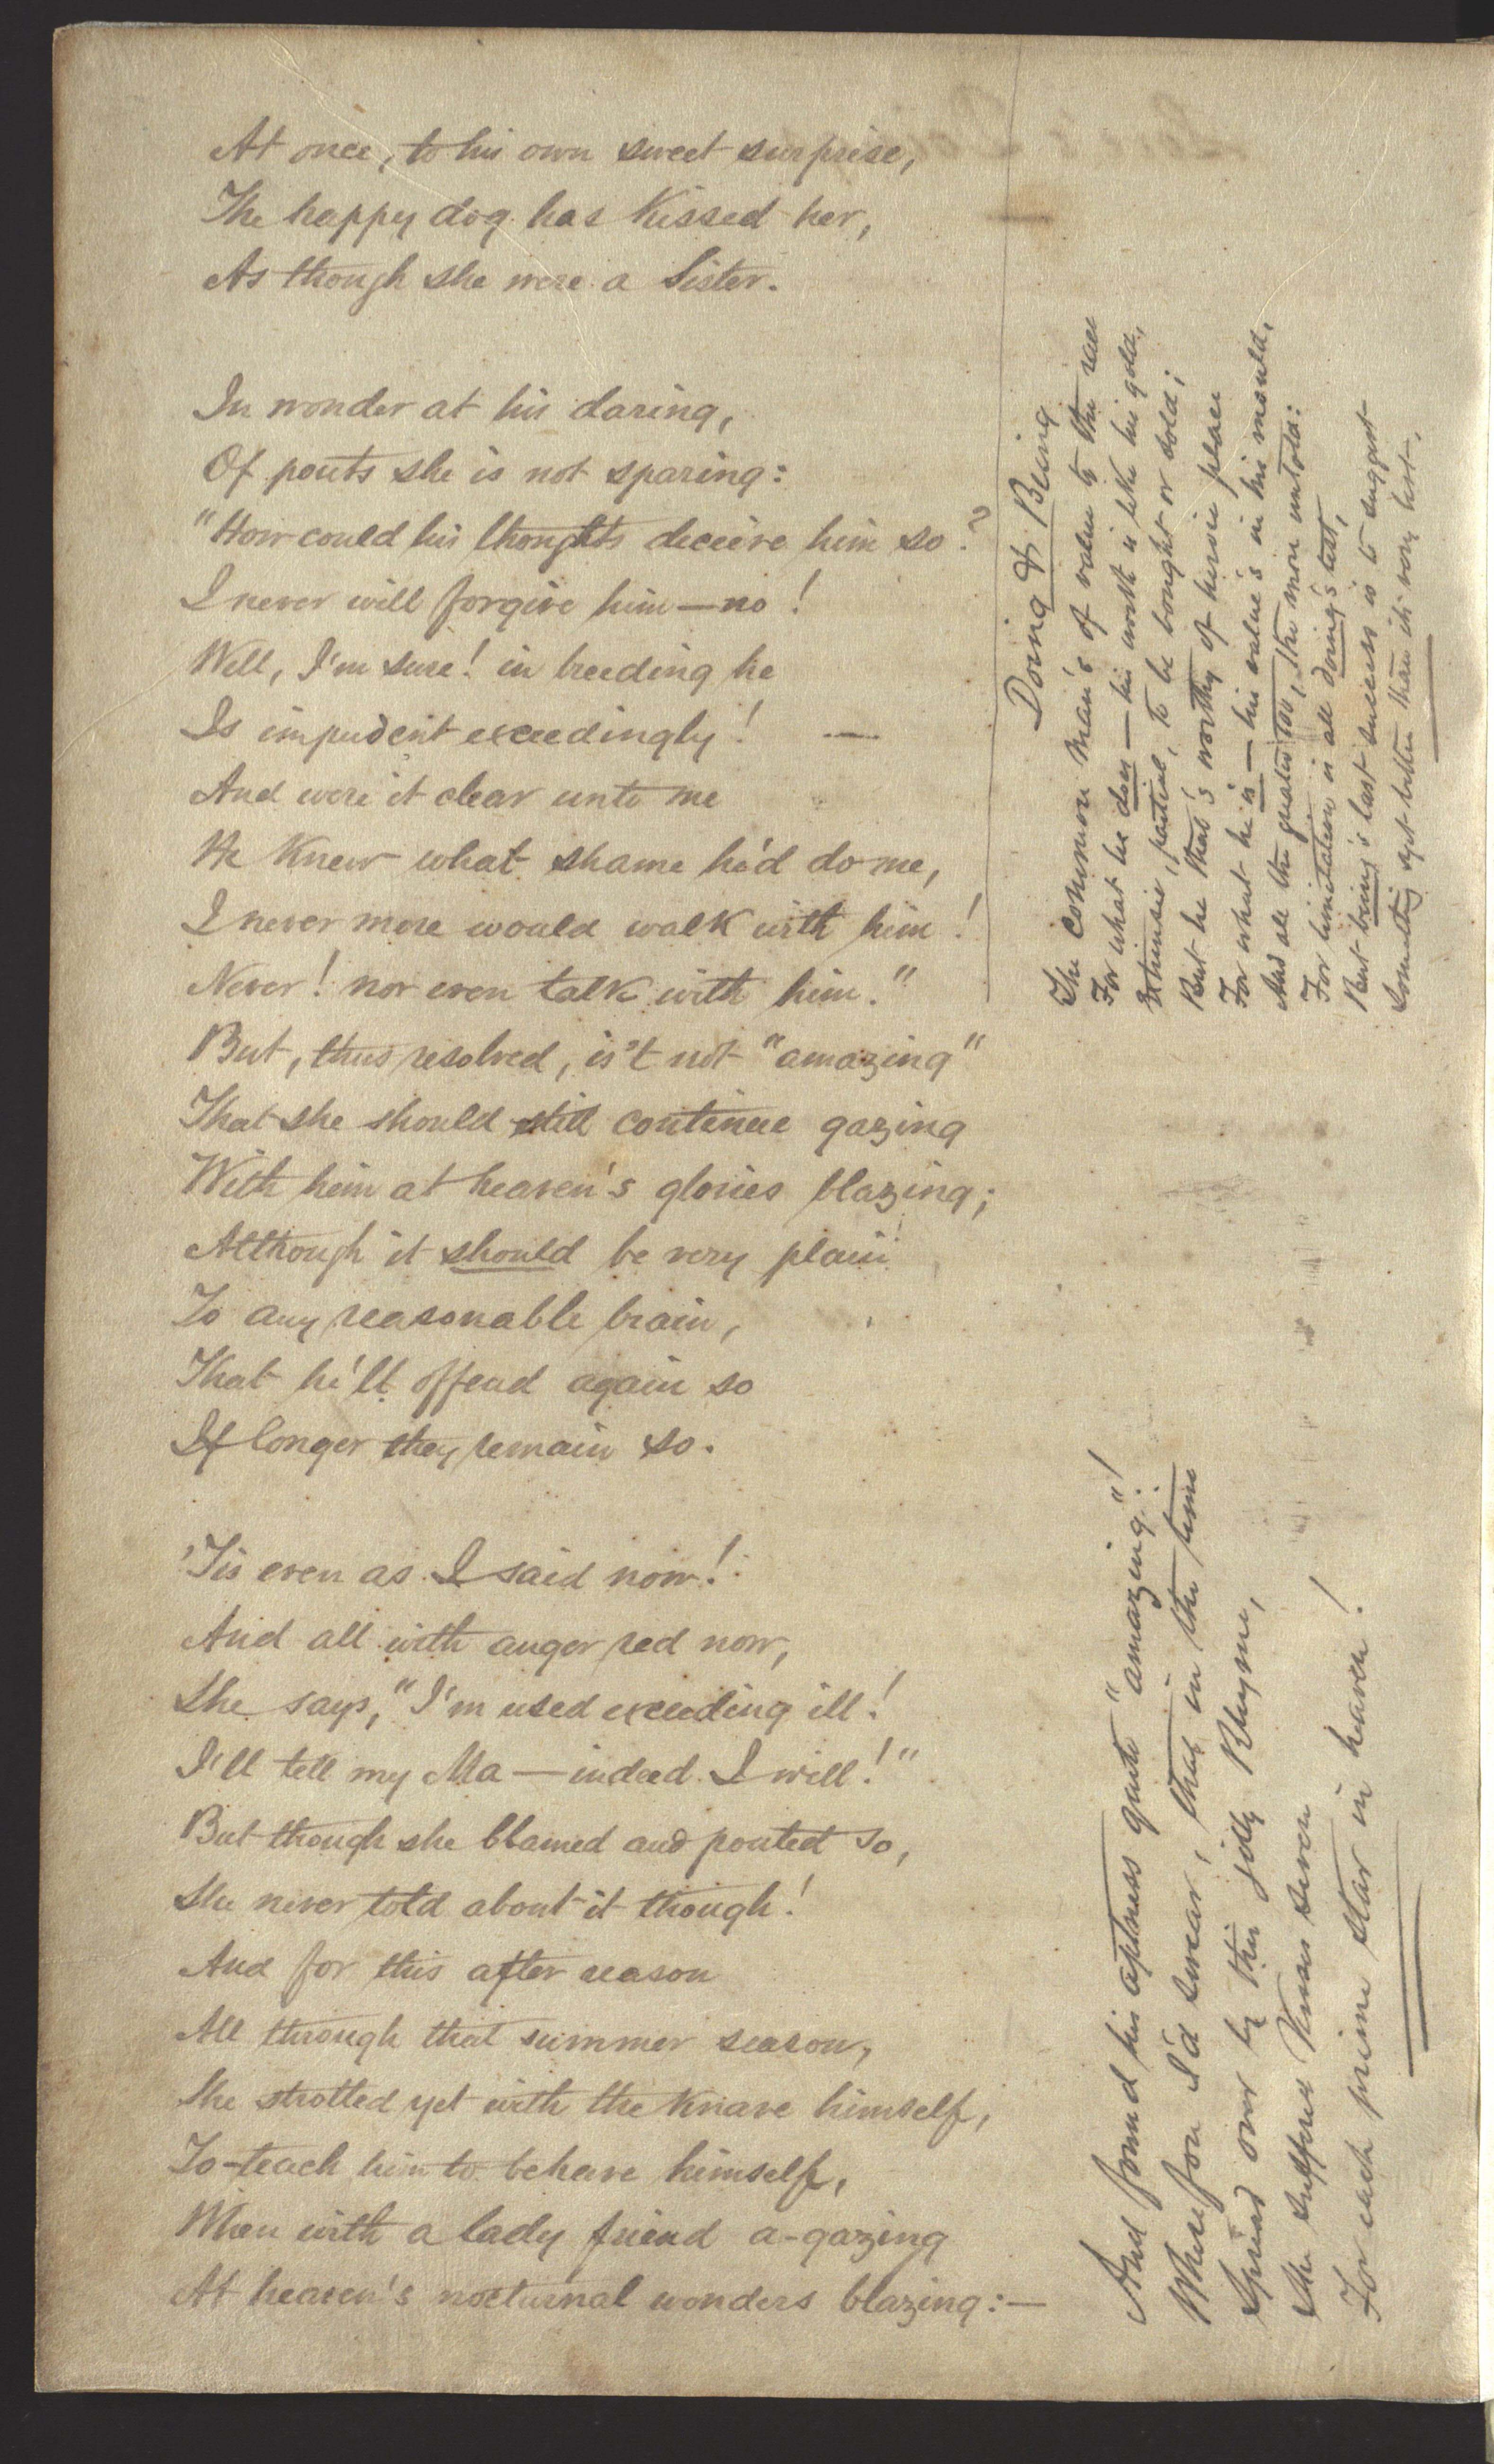 At once, to his own sweet surprise,
The happy dog has kissed her,
As though she were a Sister.
In wonder at his daring,
Of pouts she is not sparing:
"How could his thoughts deceive him so?
I never will forgive him — no!
Well, I'm sure! in breeding he
Is impudent exceedingly! —
And were it clear unto me
He knew what shame he'd do me,
I never more would walk with him!
Never! nor even talk with him."
But, thus resolved, is't not "amazing"
That she should still continue gazing
With him at heaven's glories blazing;
Although it should be very plain
To any reasonable brain,
That he'll offend again so
If longer they remain so.
'Tis even as I said now!
And all with anger red now,
She says, "I'm used exceeding ill!
I'll tell my Ma — indeed I will!"
But though she blamed and pouted so,
She never told about it though!
And for this after reason
All through that summer season,
She strolled yet with the knave himself,
To teach him to behave himself,
When with a lady friend a-gazing
At heaven's nocturnal wonders blazing:—
And found his aptness quite "amazing"!
Wherefore I'd swear, that in the time
Spread over by this jolly Rhyme,
She suffered kisses seven
For each prime star in heaven!
Doing & Being
The common man's of value to the race
For what he does — his worth is like his gold,
Extrinsic, partial, to be bought or sold;
But he that's worthy of heroic place
For what he is — his value's in his mould,
And all the greater too, the more untold:
For limitation is all doing's test,
But being's last success is to suggest
Something yet better than its very best.